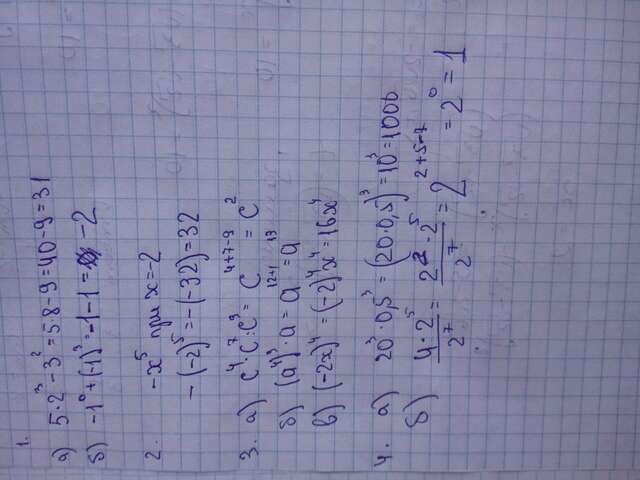 1.
а) 5·2³-3²=5·8-9=40-9=31
б) -1⁰+(-1)³=-1-1=-2
2. -x⁵ при x=-2
-(-2)⁵=-(-32)=32
3. а) c⁴·c⁷:c⁹=c⁴⁺⁷⁻⁹=c²
б) (a⁴)³·a=a¹²⁺¹=a¹³
в) (-2x)⁴=(-2)⁴x⁴=16x⁴
4. а) 20³·0,5³=(20·0,5)³=10³=1000
б) 4·2⁵/2⁷=2²·2⁵/2⁷=2²⁺⁵⁻⁷=2⁰=1